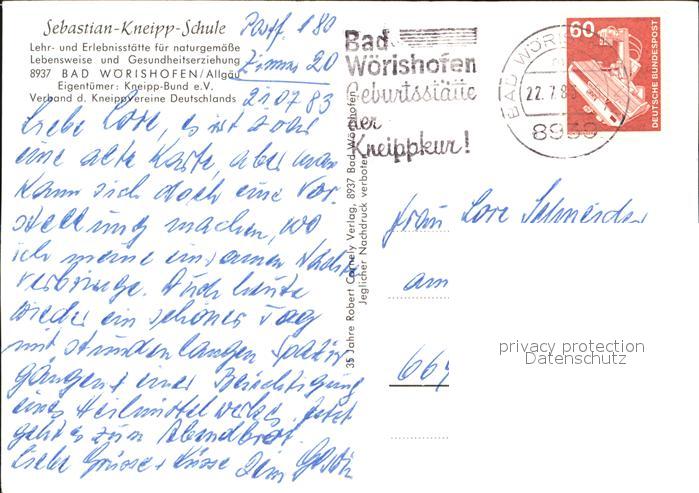 Sebastian-Kneipp-Schule
Lehr- und Erlebnisstätte für naturgemäße
Lebensweise und Gesundheitserziehung
8937 BAD WÖRISHOFEN/Allgäu
Eigentümer: Kneipp-Bund e.V.
Verband d. Kneippvereine Deutschlands
Postf. 180
Zimmer 20
21 07 83
Liebe Lore, es ist zwar
eine alte Karte, aber man
kann sich doch eine Vor-
stellung machen, wo
ich meine einsamen Nächte
verbringe. Auch heute
wieder ein schöner Tag
mit stundenlangen Spazier
gängen + einer Besichtigung
eines Heilmittelwerkes. Jetzt
geht es zum Abendbrot.
Liebe Grüsse + Küsse Dein
35 Jahre Robert Cornely Verlag, 8937 Bad Wörishofen
Jeglicher Nachdruck verboten
Bad
Wörishofen
Geburtsstätte
der
Kneippkur!
BAD WÖRIS
22.7.8
8939
60
DEUTSCHE BUNDESPOST
Frau Lore Schneider
am
664
privacy protection
Datenschutz